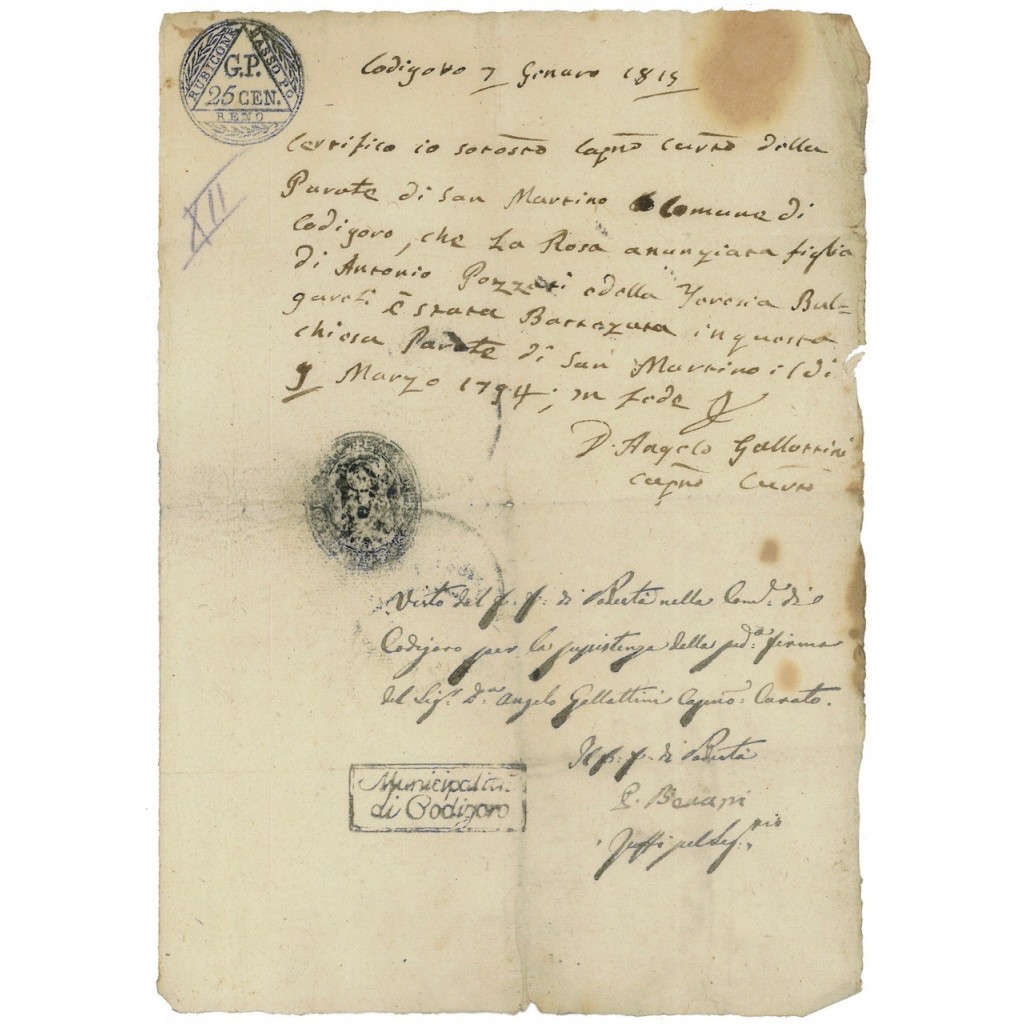 RUBICONE BASSO PO
G.P.
25 CEN.
RENO
XII
Codigoro 7 Genaro 1815
Certifico io sotostò Capño Curtò della
Parote di San Martino Comune di
Codigoro, che La Rosa anunziata figlia
di Antonio Pozzati e della Teresia Bul=
gareti è stata Battezata in questa
chiesa Parote di San Martino il di
9 Marzo 1794; in fede
D. Angelo Gallottini
Capño Curtò
Visto dal f. f. di Podestà nella Com.e di
Codigoro per la susistenza della sud.a firma
del Sig.r D.n Angelo Gallottini Capno. Curato.
Il f. f. di Podestà
Municipalità
di Codigoro